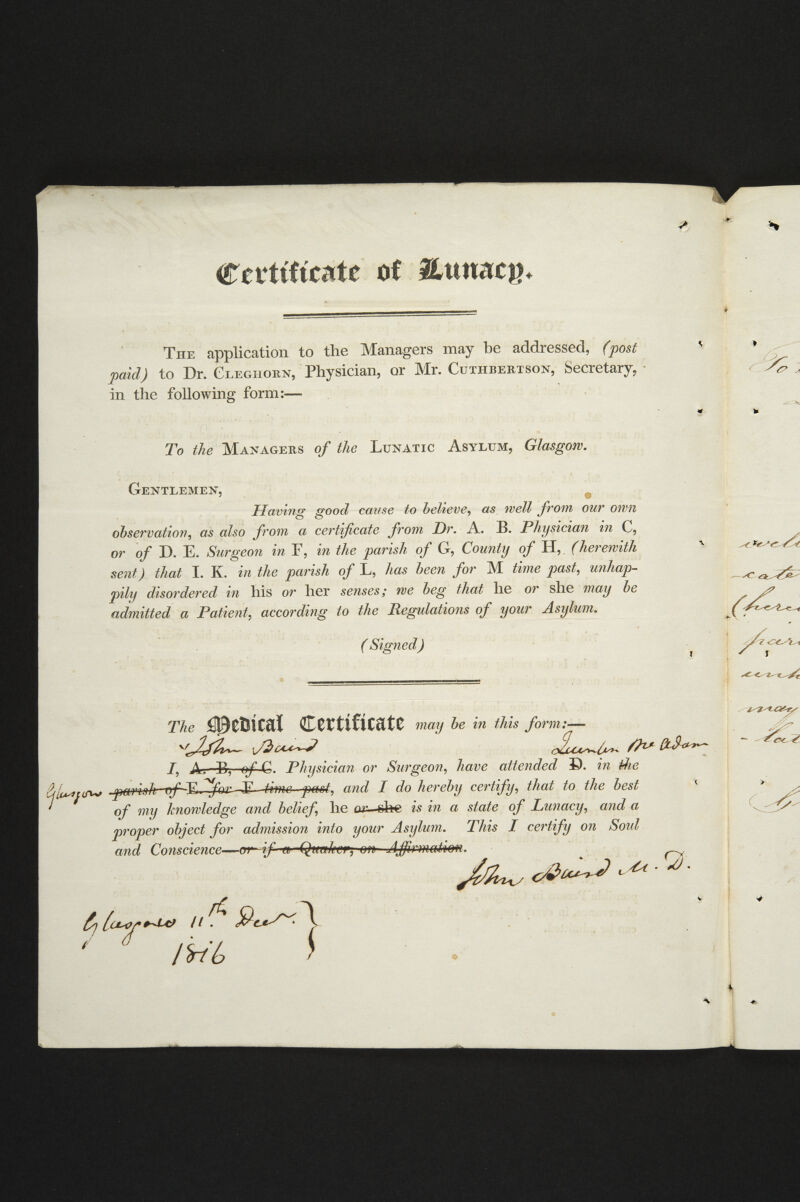 Certificate of Lunacy.
THE application to the Managers may be addressed, (post
paid) to Dr. CLEGHORN, Physician, or Mr. CUTHBERTSON, Secretary,
in the following form:—
To the MANAGERS of the LUNATIC ASYLUM, Glasgow.
GENTLEMEN,
Having good cause to believe, as well from our own
observation, as also from a certificate from Dr. A. B. Physician in C,
or of D. E. Surgeon in F, in the parish of G, County of H, (herewith
sent) that I. K. in the parish of L, has been for M time past, unhap-
pily disordered in his or her senses; we beg that he or she may be
admitted a Patient, according to the Regulations of your Asylum.
(Signed)
The Medical Certificate may be in this form:—
John Baird Quintin McAdam
I, A. B, of C. Physician or Surgeon, have attended D. in the
Glasgow parish of E. for F time past, and I do hereby certify, that to the best
of my knowledge and belief, he or she is in a state of Lunacy, and a
proper object for admission into your Asylum. This I certify on Soul
and Conscience—or if a Quaker, on Affirmation.
John Baird M. D.
Glasgow 11th Decr.
1816
To
(here
may